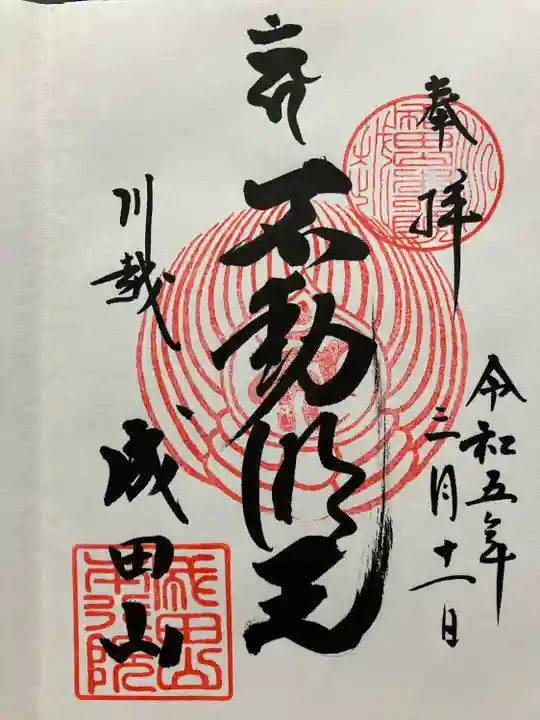 奉拝
令和五年
三月十一日
不動明王
川越
成田山
成田山
本行院